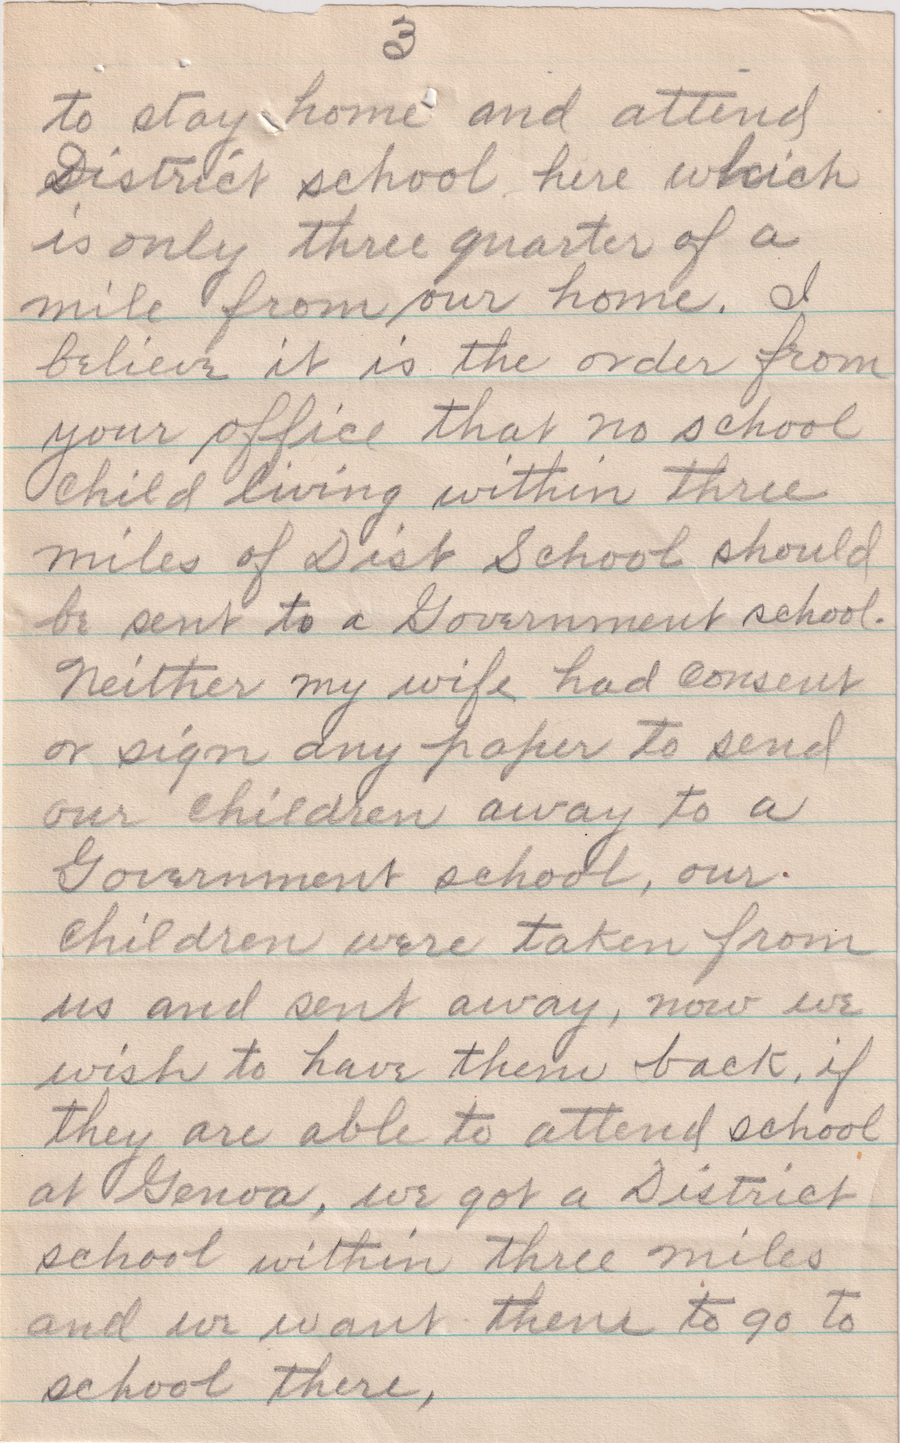 3
to stay home and attend
District school here which
is only three quarter of a
mile from our home. I
believe it is the order from
your office that no school
child living within three
miles of Dist School should
be sent to a Government school.
Neither my wife had consent
or sign any paper to send
our children away to a
Government school, our
children were taken from
us and sent away, now we
wish to have them back, if
they are able to attend school
at Genoa, we got a District
school within three miles
and we want them to go to
school there,